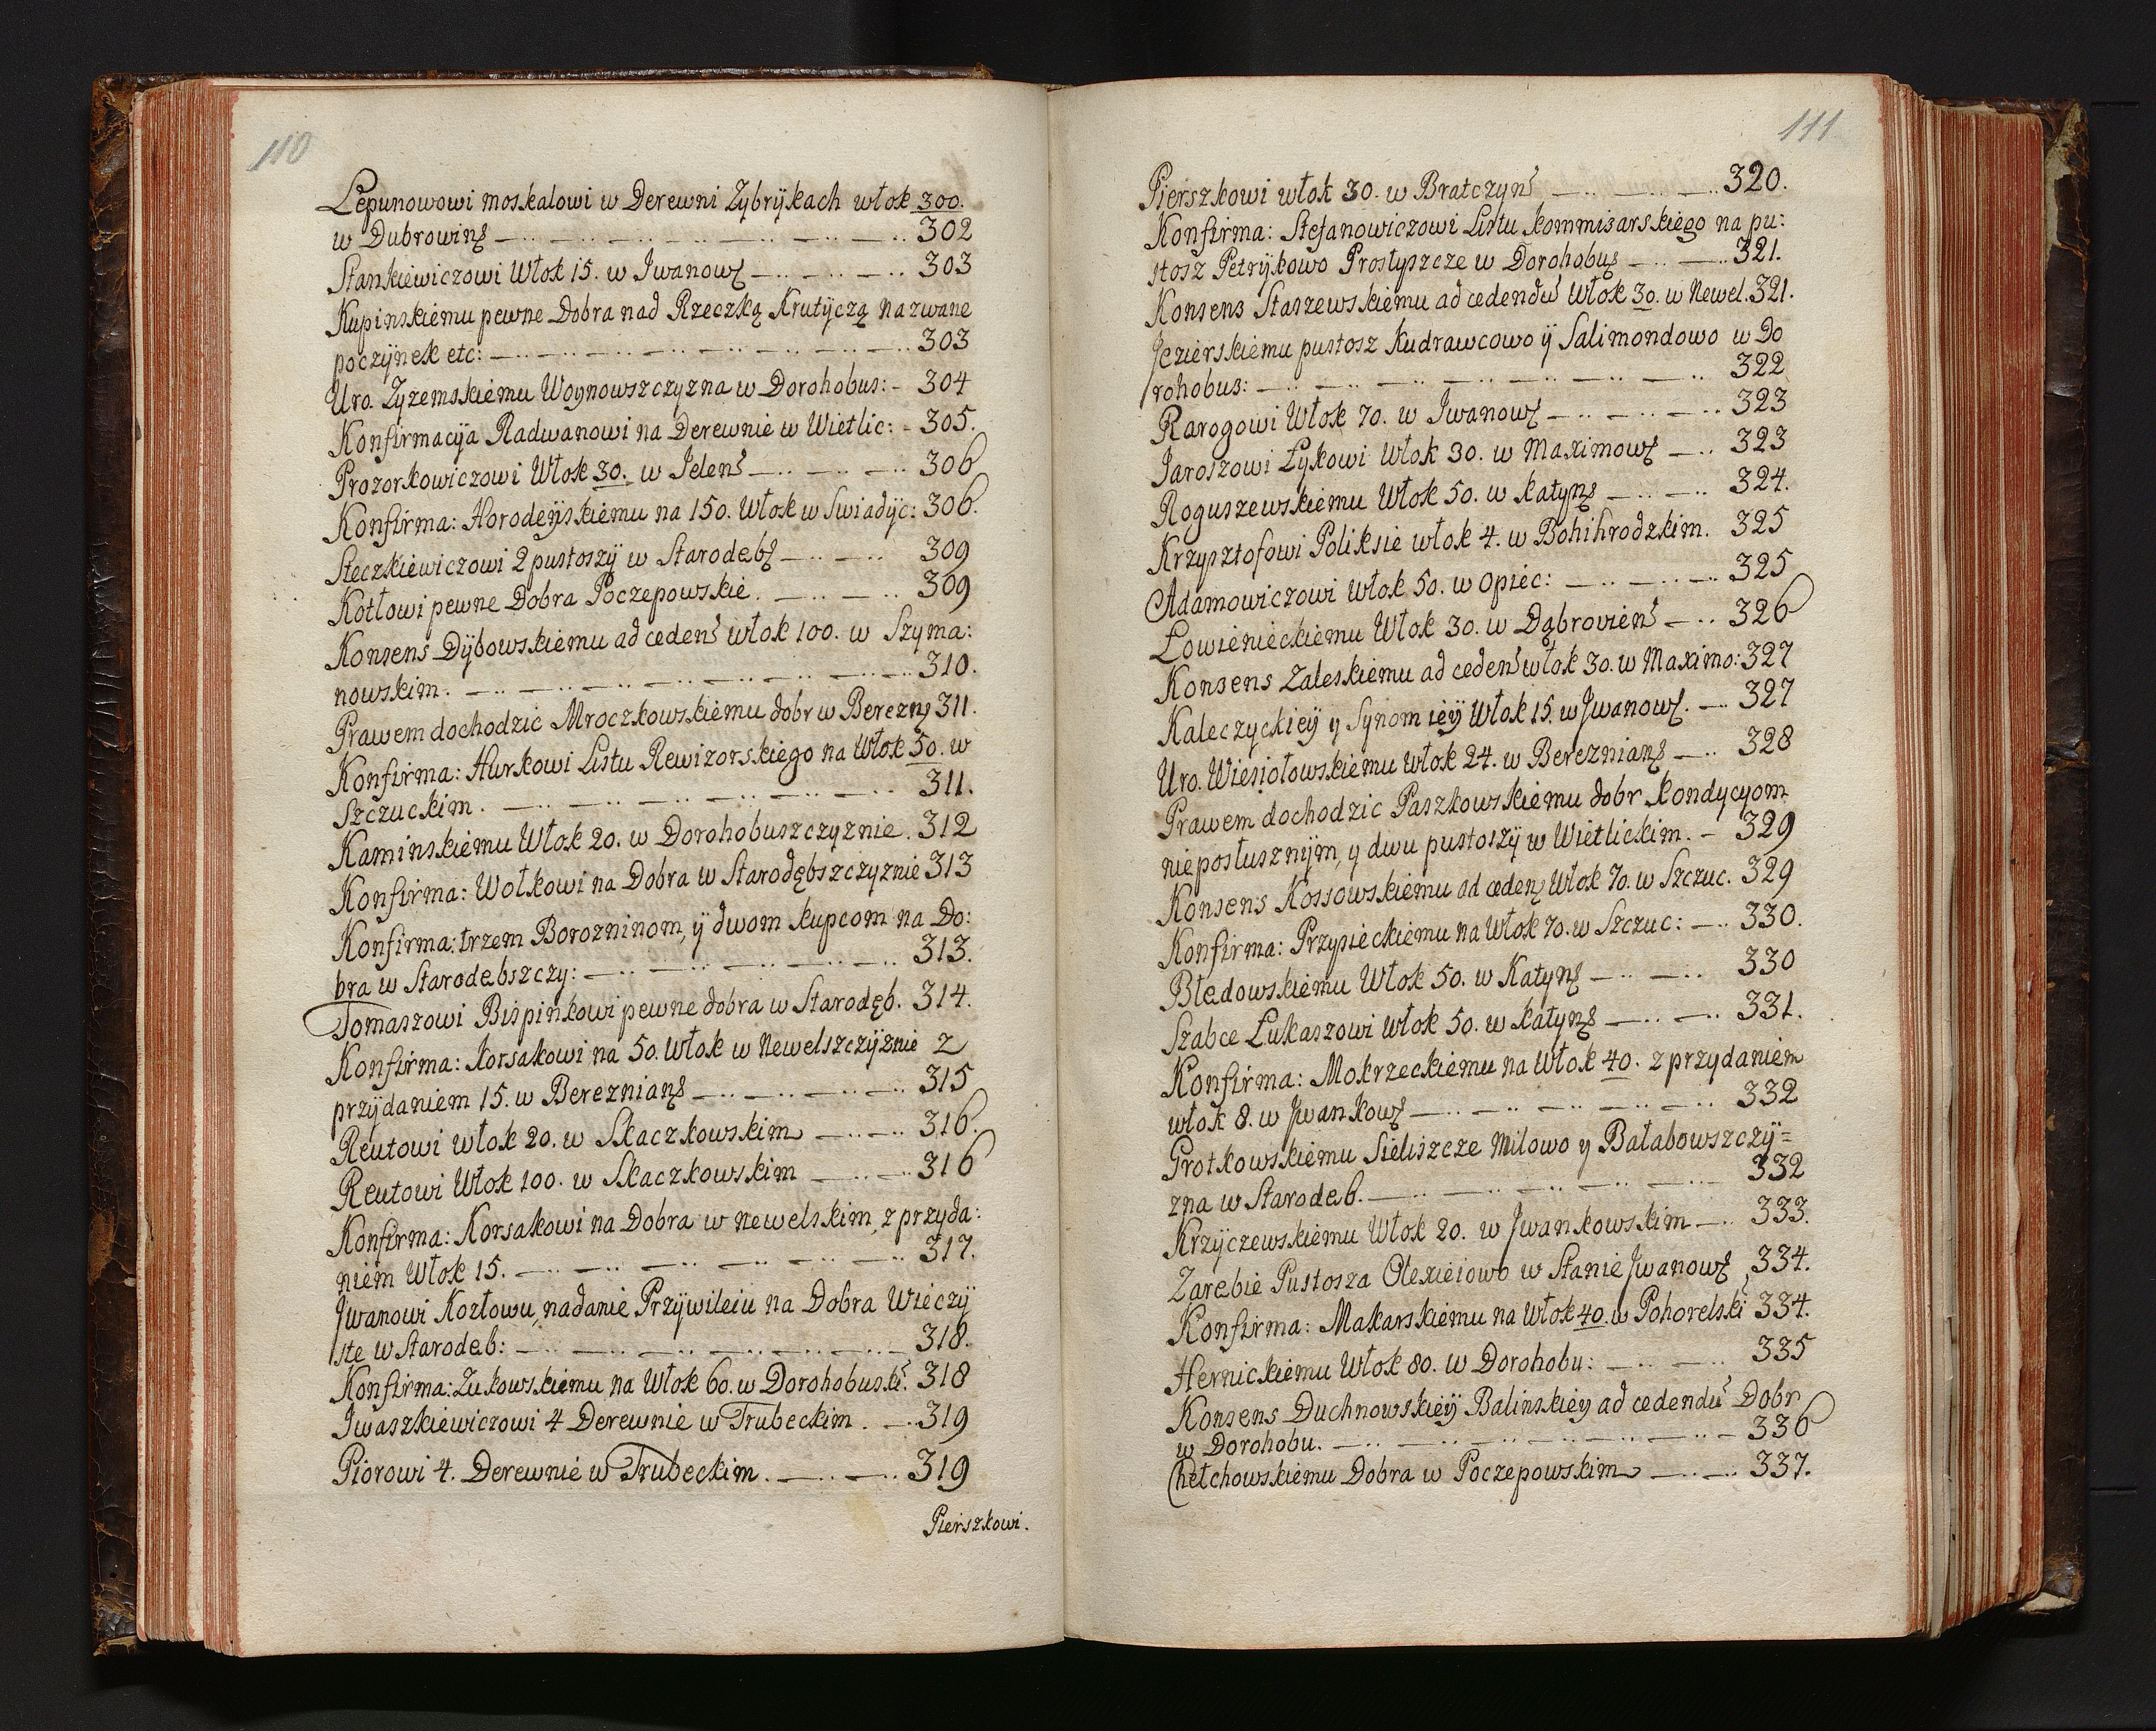 110
Lepunowowi moskalowi w Derewni Zybrÿkach włok 300.
w Dubrowinę — .. — .. — .. — .. — .. — .. — .. 302
Stankiewiczowi Włok 15. w Jwanow — .. — .. — .. 303
Kupinskiemu pewne Dobra nad Rzeczką Krutÿczą nazwane
poczÿnek etc: — .. — .. — .. — .. — .. — .. — .. 303
Uro. Zyzemskiemu Woynowszczyzna w Dorohobus: - 304
Konfirmacÿa Radwanowi na Derewnie w Wietlic: - 305.
Prozorkowiczowi Włok 30. w Jelen — .. — .. — .. 306
Konfirma: Horodeÿskiemu na 150. Włok w Swiadÿc: 306.
Steczkiewiczowi 2 pustoszÿ w Starodeb — .. — .. 309
Kotłowi pewne Dobra Poczepowskie. — .. — .. 309
Konsens Dÿbowskiemu ad ceden włok 100. w Szyma:
nowskim. — .. — .. — .. — .. — .. — .. — .. 310.
Prawem dochodzic Mroczkowskiemu dobr w Berezn 311.
Konfirma: Hurkowi Listu Rewizorskiego na Włok 50. w
Szczuckim. — .. — .. — .. — .. — .. — .. 311.
Kaminskiemu Włok 20. w Dorohobuszczyznie. 312
Konfirma: Wołkowi na Dobra w Starodębszczyznie 313
Konfirma: trzem Borozninom, ÿ dwom kupcom na Do:
bra w Starodebszczy: — .. — .. — .. — .. — .. 313.
Tomaszowi Bispinkowi pewne dobra w Starodęb. 314.
Konfirma: Korsakowi na 50. Włok w Newelszczÿznie z
przÿdaniem 15. w Berezniań — .. — .. — .. — .. 315
Reutowi włok 20. w Skaczkowskim — .. — .. 316.
Reutowi Włok 100. w Skaczkowskim — .. — .. 316
Konfirma: Korsakowi na Dobra w newelskim, z przyda:
niem Włok 15. — .. — .. — .. — .. — .. — .. 317.
Jwanowi Kozłowu, nadanie Przÿwileiu na Dobra Wieczÿ
ste w Starodeb: — .. — .. — .. — .. — .. — .. 318.
Konfirma: Zukowskiemu na Włok 60. w Dorohobuski. 318
Jwaszkiewiczowi 4 Derewnie w Trubeckim. — .. 319
Piorowi 4. Derewnie w Trubeckim. — .. — .. 319
Pierszkowi.
111
Pierszkowi włok 30. w Bratczyn — .. — .. — .. 320.
Konfirma: Stefanowiczowi Listu kommisarskiego na pu:
stosz Petrÿkowo Prostyszcze w Dorohobuę — .. — .. 321.
Konsens Staszewskiemu ad cedendu Włok 30. w Newel. 321.
Jezierskiemu pustosz Kudrawcowo ÿ Salimondowo w Do
rohobus: — .. — .. — .. — .. — .. — .. — .. 322
Rarogowi Włok 70. w Jwanow — .. — .. — .. 323
Jaroszowi Łykowi Włok 30. w Maximow — .. 323
Roguszewskiemu Włok 50. w katyń — .. — .. 324.
Krzysztofowi Poliksie włok 4. w Bohihrodzkim. 325
Adamowiczowi Włok 50. w Opiec: — .. — .. — .. 325
Łowienieckiemu Włok 30. w Dąbrovień — .. 326
Konsens Zaleskiemu ad ceden włok 30. w Maximo: 327
Kaleczyckieÿ y Synom ieÿ Włok 15. w Jwanow. — .. 327
Uro. Wiesiołowskiemu włok 24. w Berezniań — .. 328
Prawem dochodzic Paszkowskiemu dobr kondycyom
nieposłusznÿm, y dwu pustoszÿ w Wietlickim. - 329
Konsens Kossowskiemu ad ceden Włok 70. w Szczuc. 329
Konfirma: Przysieckiemu na Włok 70. w Szczuc: — .. 330.
Błedowskiemu Włok 50. w Katyń — .. — .. 330
Szabce Lukaszowi Włok 50. w katyń — .. — .. 331.
Konfirma: Mokrzeckiemu na Włok 40. z przydaniem
włok 8. w Jwankow — .. — .. — .. — .. — .. 332
Grotkowskiemu Sieliszcze Milowo y Bałabowszczÿ=
zna w Starodeb. — .. — .. — .. — .. — .. — .. 332
Krzÿczewskiemu Włok 20. w Jwankowskim — .. 333.
Zarebie Pustosza Olexieiowo w Stanie Jwanow 334.
Konfirma: Makarskiemu na Włok 40. w Pohorelski 334.
Hernickiemu Włok 80. w Dorohobu: — .. — .. 335
Konsens Duchnowskieÿ Balinskiey ad cedendu Dobr
w Dorohobu. — .. — .. — .. — .. — .. — .. — 336
Chełchowskiemu Dobra w Poczepowskim — .. — .. 337.